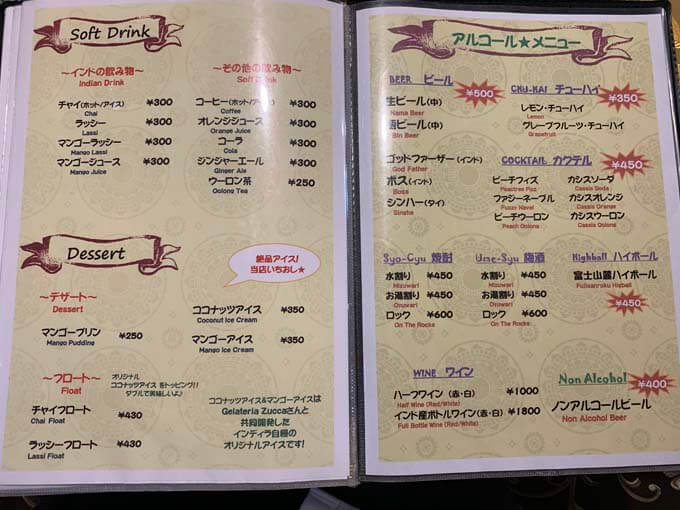 Soft Drink
～インドの飲み物～
Indian Drink
チャイ(ホット/アイス) ¥300
Chai
ラッシー ¥300
Lassi
マンゴーラッシー ¥300
Mango Lassi
マンゴージュース ¥300
Mango Juice
～その他の飲み物～
Soft Drink
コーヒー(ホット/アイス) ¥300
Coffee
オレンジジュース ¥300
Orange Juice
コーラ ¥300
Cola
ジンジャーエール ¥300
Ginger Ale
ウーロン茶 ¥250
Oolong Tea
Dessert
絶品アイス!
当店いちおし★
～デザート～
Dessert
マンゴープリン ¥250
Mango Pudding
ココナッツアイス ¥350
Coconut Ice Cream
マンゴーアイス ¥350
Mango Ice Cream
～フロート～
Float
オリジナル
ココナッツアイス をトッピング!!
ダブルで美味しいよ♪
チャイフロート ¥430
Chai Float
ラッシーフロート ¥430
Lassi Float
ココナッツアイス&マンゴーアイスは
Gelateria Zuccaさんと
共同開発した
インディラ自慢の
オリジナルアイスです!
アルコール★メニュー
BEER ビール
¥500
生ビール(中)
Nama Beer
瓶ビール(中)
Bin Beer
ゴッドファーザー(インド)
God Father
ボス(インド)
Boss
シンハー(タイ)
Sinha
CHU-HAI チューハイ
¥350
レモン・チューハイ
Lemon
グレープフルーツ・チューハイ
Grapefruit
COCKTAIL カクテル
¥450
ピーチフィズ
ファジーネーブル
Fuzzy Navel
ピーチウーロン
Peach Oolong
カシスソーダ
Cassis Soda
カシスオレンジ
Cassis Orange
カシスウーロン
Cassis Oolong
Syo-Cyu 焼酎
水割り ¥450
Mizuwari
お湯割り ¥450
Oyuwari
ロック ¥600
On The Rocks
Ume-Syu 梅酒
水割り ¥450
Mizuwari
お湯割り ¥450
Oyuwari
ロック ¥600
On The Rocks
Highball ハイボール
富士山麓ハイボール
Fujisanroku Highball
¥450
WINE ワイン
ハーフワイン (赤・白) ¥1000
Half Wine (Red/White)
インド産ボトルワイン (赤・白) ¥1800
Full Bottle Wine (Red/White)
Non Alcohol
¥400
ノンアルコールビール
Non Alcohol Beer